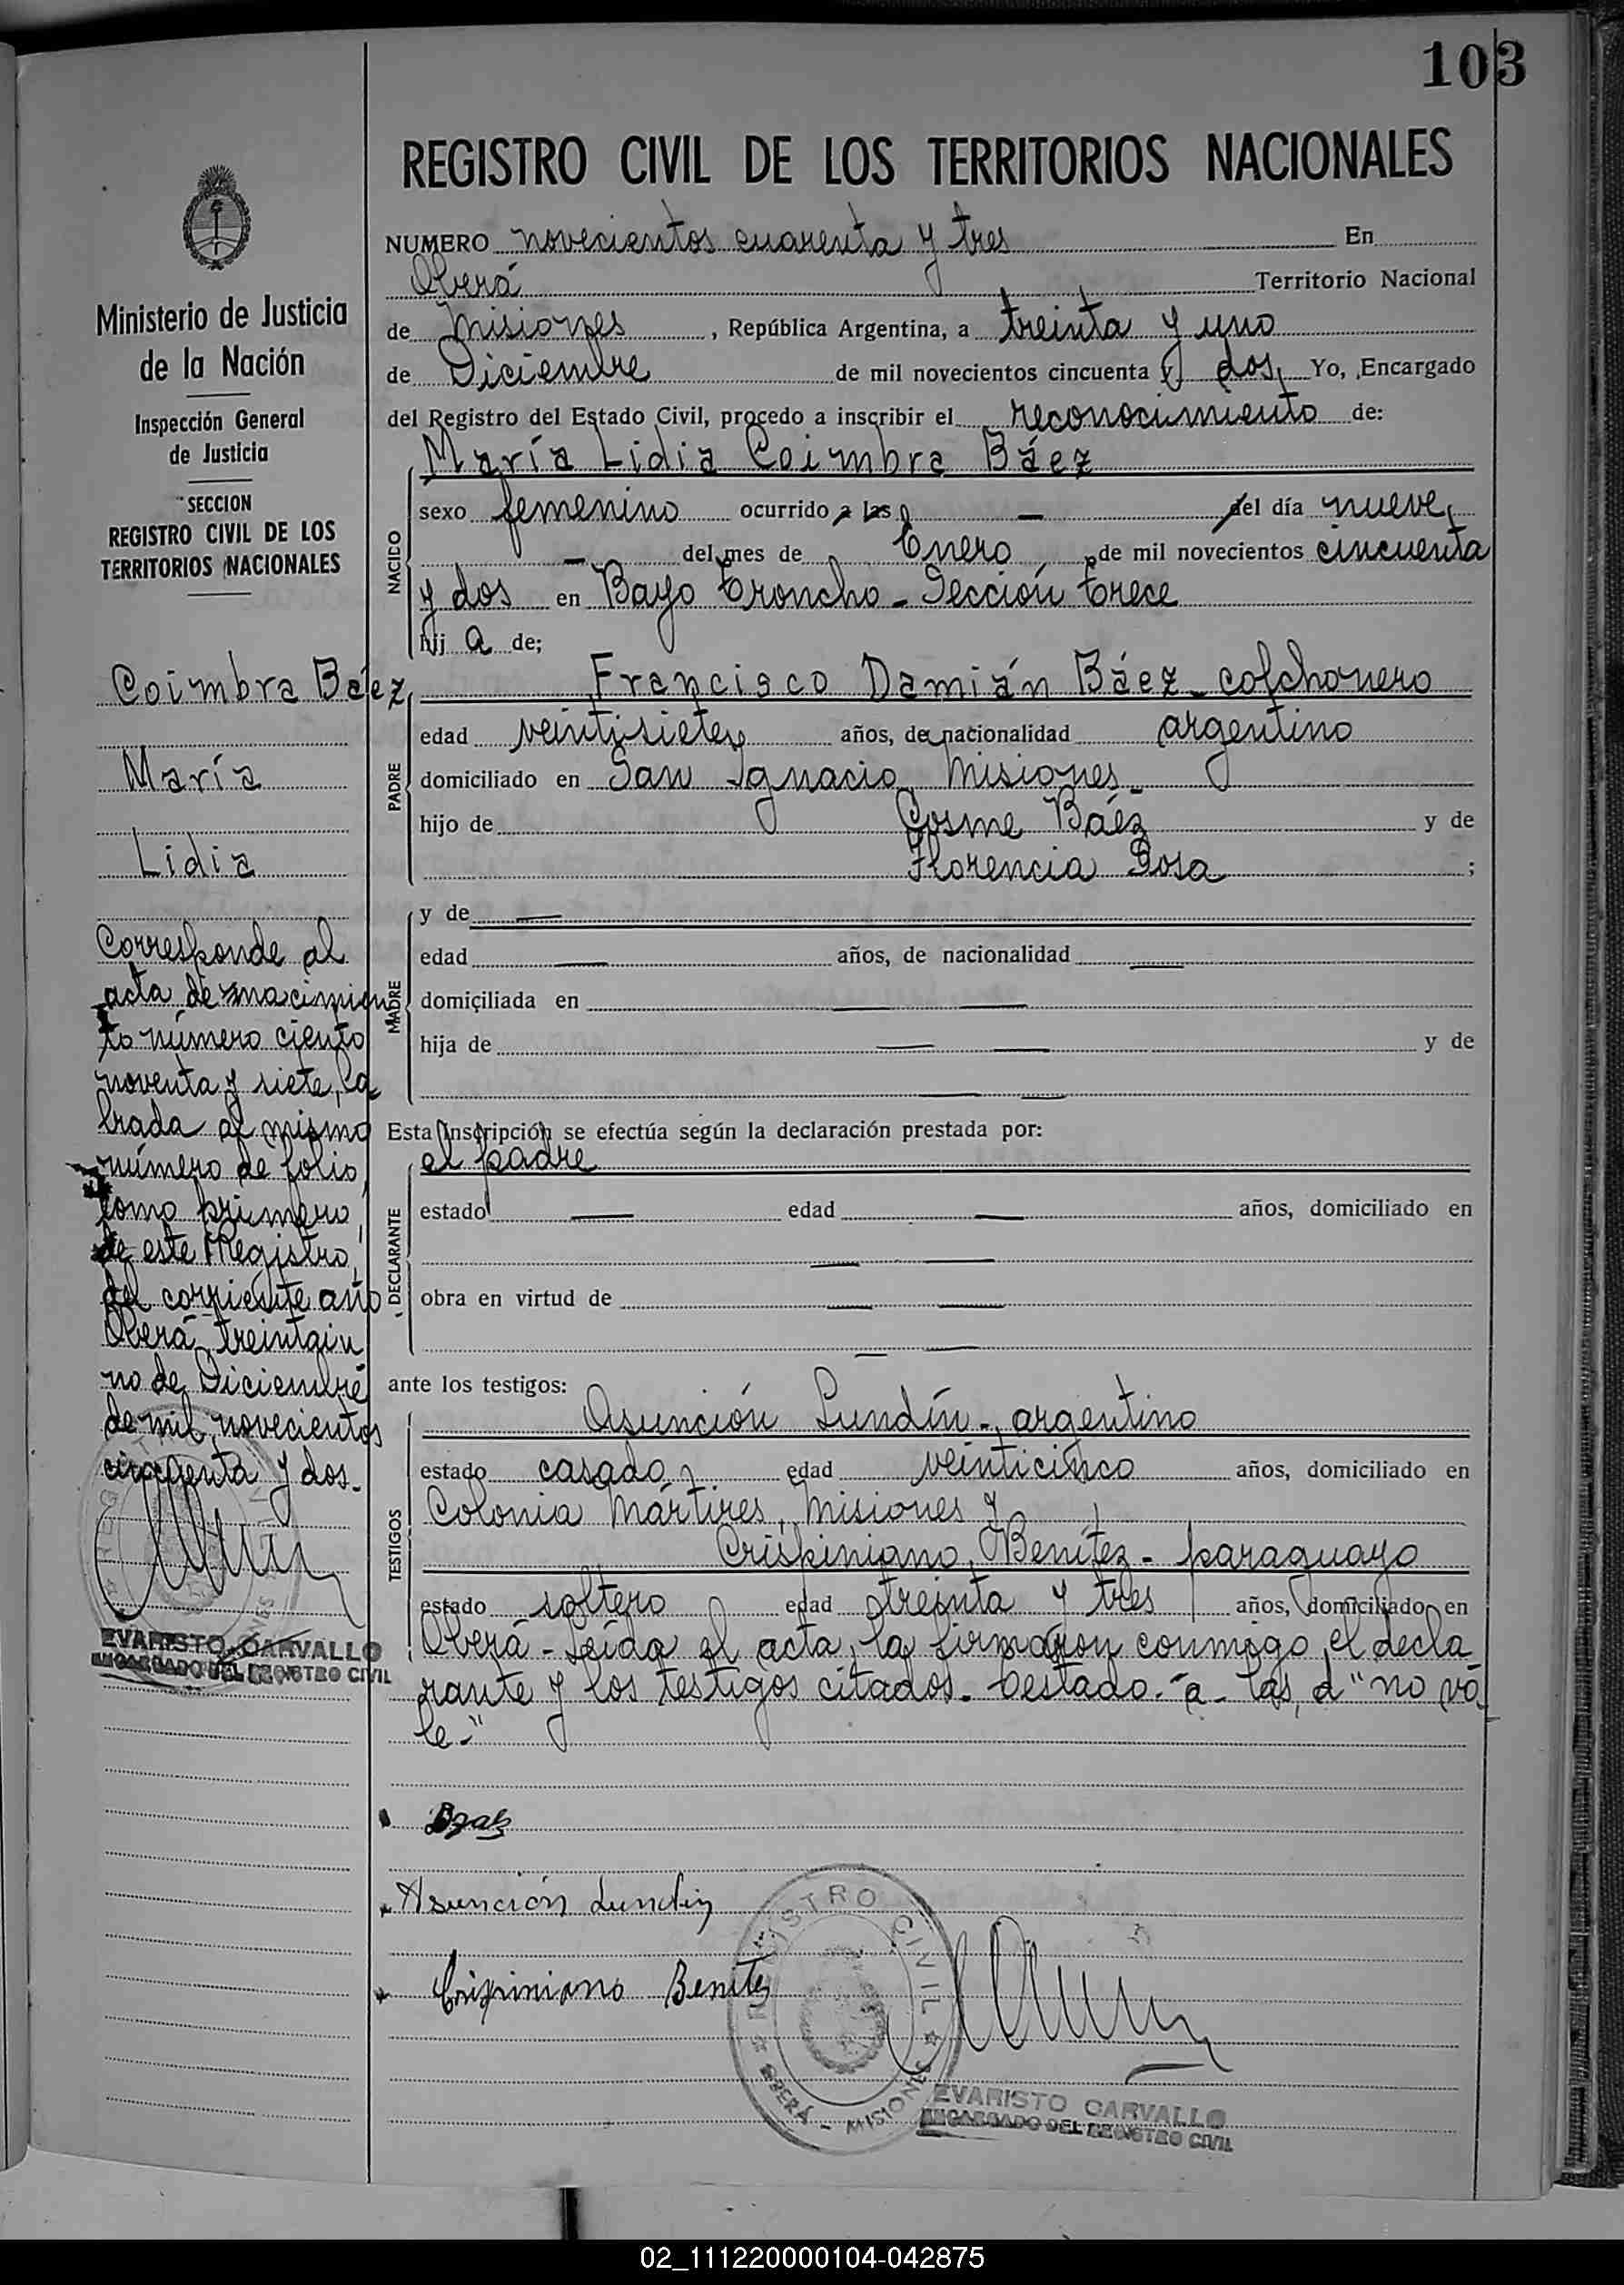 103
REGISTRO CIVIL DE LOS TERRITORIOS NACIONALES
Ministerio de Justicia
de la Nación
Inspección General
de Justicia
SECCION
REGISTRO CIVIL DE LOS
TERRITORIOS NACIONALES
Coimbra Báez
María
Lidia
Corresponde al
acta de nacimien
to número ciento
noventa y siete, la
brada al mismo
número de folio,
tomo primero,
de este Registro,
del corriente año
Oberá, treintaiu
no de Diciembre
de mil novecientos
cincuenta y dos.
EVARISTO CARVALLO
ENCARGADO DEL REGISTRO CIVIL
NUMERO novecientos cuarenta y tres En
Oberá Territorio Nacional
de Misiones, República Argentina, a treinta y uno
de Diciembre de mil novecientos cincuenta y dos, Yo, Encargado
del Registro del Estado Civil, procedo a inscribir el reconocimiento de:
María Lidia Coimbra Báez
NACIDO
sexo femenino ocurrido a las — del día nueve
— del mes de Enero de mil novecientos cincuenta
y dos en Bayo Troncho - Sección Trece
hij a de;
PADRE
Francisco Damián Báez - colchonero
edad veintisiete años, de nacionalidad argentino
domiciliado en San Ignacio, Misiones -
hijo de Cosme Báez y de
Florencia Sosa ;
MADRE
y de —
edad — años, de nacionalidad —
domiciliada en —
hija de — — y de
— —
Esta inscripción se efectúa según la declaración prestada por:
DECLARANTE
el padre
estado — edad — años, domiciliado en
— —
obra en virtud de — —
— —
ante los testigos:
TESTIGOS
Asunción Lundín - argentino
estado casado edad veinticinco años, domiciliado en
Colonia Mártires, Misiones y
Crispiniano Benítez - paraguayo
estado soltero edad treinta y tres años, domiciliado en
Oberá - Leída el acta, la firmaron conmigo, el decla
rante y los testigos citados. Testado - "a - las, d" no va
le -"
Asunción Lundin
Crispiniano Benitez
REGISTRO CIVIL
OBERÁ - MISIONES
EVARISTO CARVALLO
ENCARGADO DEL REGISTRO CIVIL
02_111220000104-042875